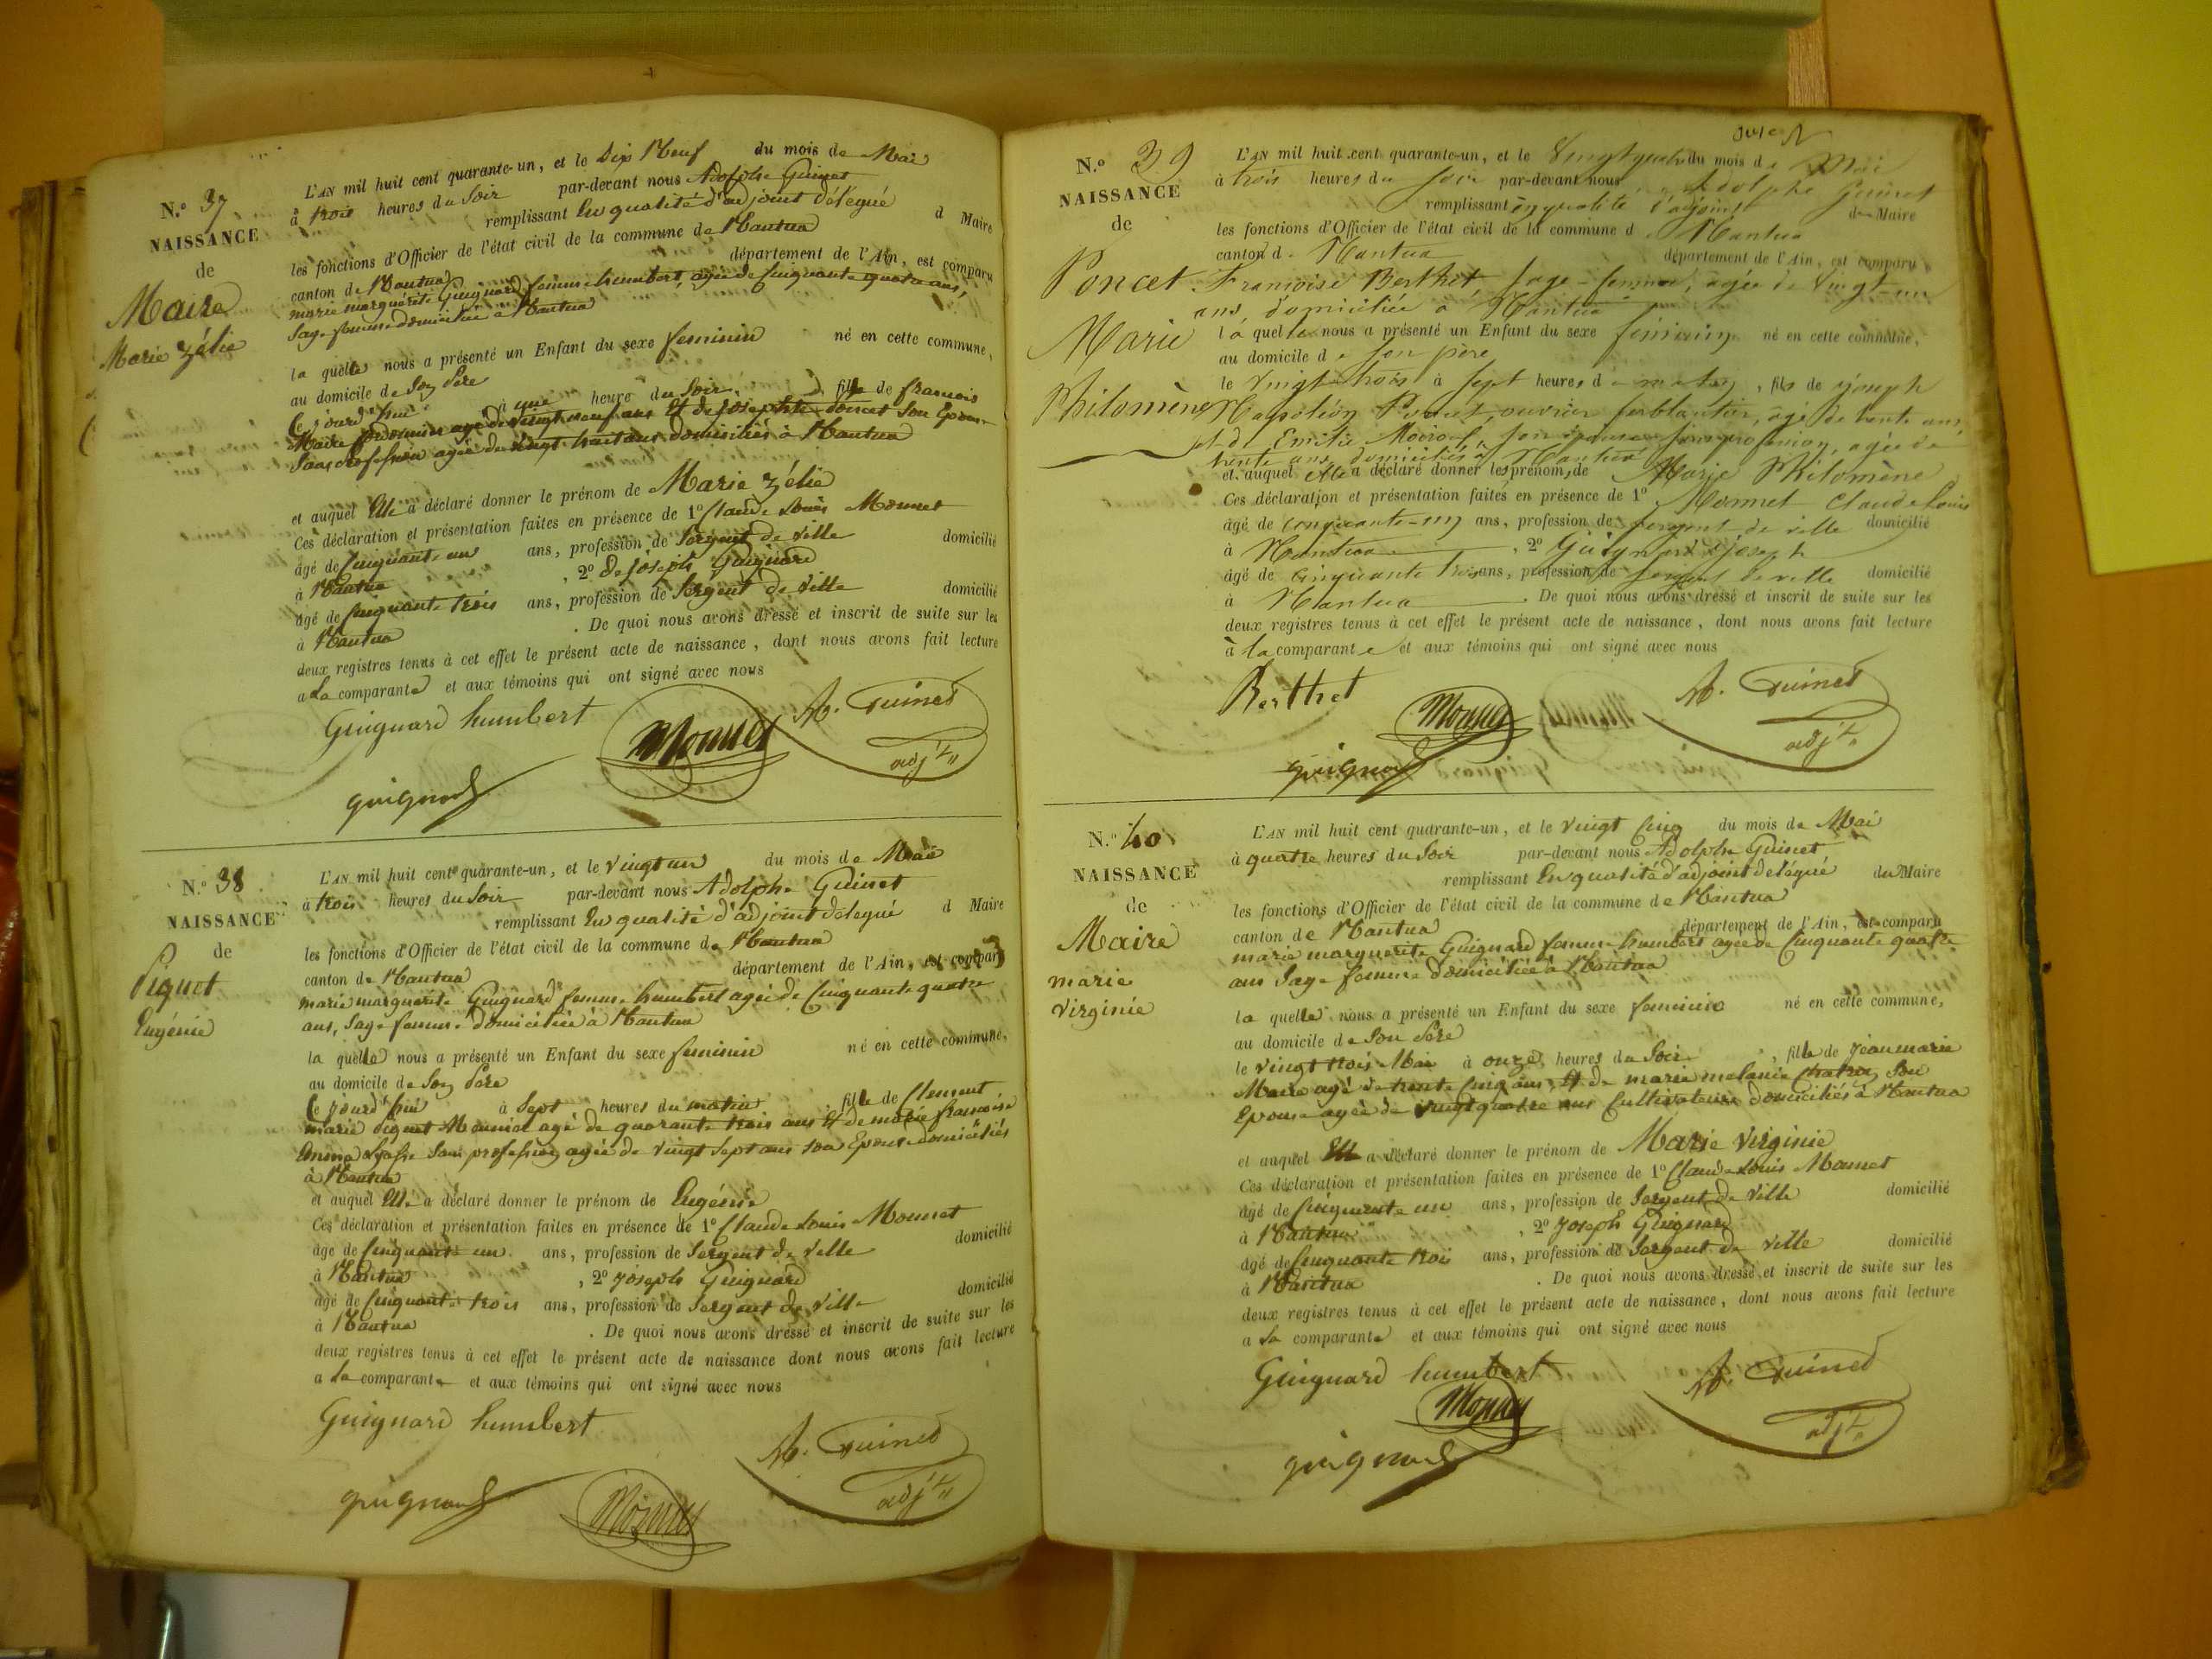 N.º 37
NAISSANCE
de
Maire
Marie Zélie
L'AN mil huit cent quarante-un, et le Dix Neuf du mois de Mai
à trois heures du Soir par-devant nous Adolphe Guinet
remplissant En qualité d'adjoint délégué d Maire
les fonctions d'Officier de l'état civil de la commune de Nantua
canton de Nantua département de l'Ain, est comparu
marie marguerite Guignard femme humbert, agée de Cinquante quatre ans,
Sage femme domiciliée à Nantua
la quelle nous a présenté un Enfant du sexe feminin né en cette commune,
au domicile de Son Père
Ce jourd'hui à une heure du Soir, fille de francois
Maire Cordonnier agé de vingt neuf ans Et de Josephte Poncet Son Epouse
Sans profession agée de vingt huit ans domiciliés à Nantua
et auquel Elle a déclaré donner le prénom de Marie Zélie
Ces déclaration et présentation faites en présence de 1º Claude Louis Monnet
âgé de Cinquante un ans, profession de Sergent de Ville domicilié
à Nantua, 2º de joseph Guignard
âgé de Cinquante trois ans, profession de Sergent de Ville domicilié
à Nantua. De quoi nous avons dressé et inscrit de suite sur les
deux registres tenus à cet effet le présent acte de naissance, dont nous avons fait lecture
a La comparante et aux témoins qui ont signé avec nous
Guignard humbert
Monnet
A. Guinet
adj.t
guignard
N.º 38
NAISSANCE
de
Piquet
Eugénie
L'AN mil huit cent quarante-un, et le vingt un du mois de Mai
à trois heures du Soir par-devant nous Adolphe Guinet
remplissant En qualité d'adjoint delegué d Maire
les fonctions d'Officier de l'état civil de la commune de Nantua
canton de Nantua département de l'Ain, est comparu
marie marguerite Guignard femme humbert agée de Cinquante quatre
ans, Sage femme domiciliée à Nantua
la quelle nous a présenté un Enfant du sexe feminin né en cette commune,
au domicile de Son Père
Ce jourd'hui à Sept heures du matin, fille de Clement
marie Piquet agé de quarante trois ans Et de marie francoise
Sans profession agée de vingt Sept ans son Epouse domiciliés
à Nantua
et auquel Elle a déclaré donner le prénom de Eugénie
Ces déclaration et présentation faites en présence de 1º Claude Louis Monnet
âgé de Cinquante un ans, profession de Sergent de Ville domicilié
à Nantua, 2º joseph Guignard
âgé de Cinquante trois ans, profession de Sergent de Ville domicilié
à Nantua. De quoi nous avons dressé et inscrit de suite sur les
deux registres tenus à cet effet le présent acte de naissance dont nous avons fait lecture
a La comparante et aux témoins qui ont signé avec nous
Guignard humbert
A. Guinet
adj.t
guignard
Monnet
N.º 39
NAISSANCE
de
Poncet
Marie
Philomène
L'AN mil huit cent quarante-un, et le Vingt quatre du mois de Mai
à trois heures du soir par-devant nous Adolphe Guinet
remplissant en qualité d'adjoint de Maire
les fonctions d'Officier de l'état civil de la commune d Nantua
canton d. Nantua département de l'Ain, est comparu
Francoise Berthet, Sage-femme, agée de Vingt-un
ans, domiciliée à Nantua
la quelle nous a présenté un Enfant du sexe féminin né en cette commune,
au domicile de son père
le vingt trois à sept heures d matin, fils de joseph
Napoléon Poncet, ouvrier ferblantier, agé de trente ans,
et d'Emilie son épouse sans profession, agée de
trente ans, domiciliés à Nantua
et auquel elle a déclaré donner les prénom, de Marie Philomène
Ces déclaration et présentation faites en présence de 1º Monnet Claude Louis
âgé de cinquante-un ans, profession de sergent de ville domicilié
à Nantua, 2º Guignard joseph
âgé de cinquante trois ans, profession de sergent de ville domicilié
à Nantua. De quoi nous avons dressé et inscrit de suite sur les
deux registres tenus à cet effet le présent acte de naissance, dont nous avons fait lecture
à la comparante et aux témoins qui ont signé avec nous
Berthet
Monnet
A. Guinet
adj.t
guignard
N.º 40
NAISSANCE
de
Maire
marie
virginie
L'AN mil huit cent quarante-un, et le vingt Cinq du mois de Mai
à quatre heures du Soir par-devant nous Adolphe Guinet
remplissant En qualité d'adjoint delégué du Maire
les fonctions d'Officier de l'état civil de la commune de Nantua
canton de Nantua département de l'Ain, est comparu
marie marguerite Guignard femme humbert agée de Cinquante quatre
ans Sage femme domiciliée à Nantua
la quelle nous a présenté un Enfant du sexe feminin né en cette commune,
au domicile de Son Père
le vingt trois Mai à onze heures du Soir, fille de jean marie
Maire agé de trente Cinq ans, Et de marie melanie Son
Epouse agée de vingt quatre ans Cultivateurs domiciliés à Nantua
et auquel Elle a déclaré donner le prénom de Marie Virginie
Ces déclaration et présentation faites en présence de 1º Claude Louis Monnet
âgé de Cinquante un ans, profession de Sergent de Ville domicilié
à Nantua, 2º Joseph Guignard
âgé de Cinquante trois ans, profession de Sergent de Ville domicilié
à Nantua. De quoi nous avons dressé et inscrit de suite sur les
deux registres tenus à cet effet le présent acte de naissance, dont nous avons fait lecture
a La comparante et aux témoins qui ont signé avec nous
Guignard humbert
Monnet
A. Guinet
adj.t
guignard